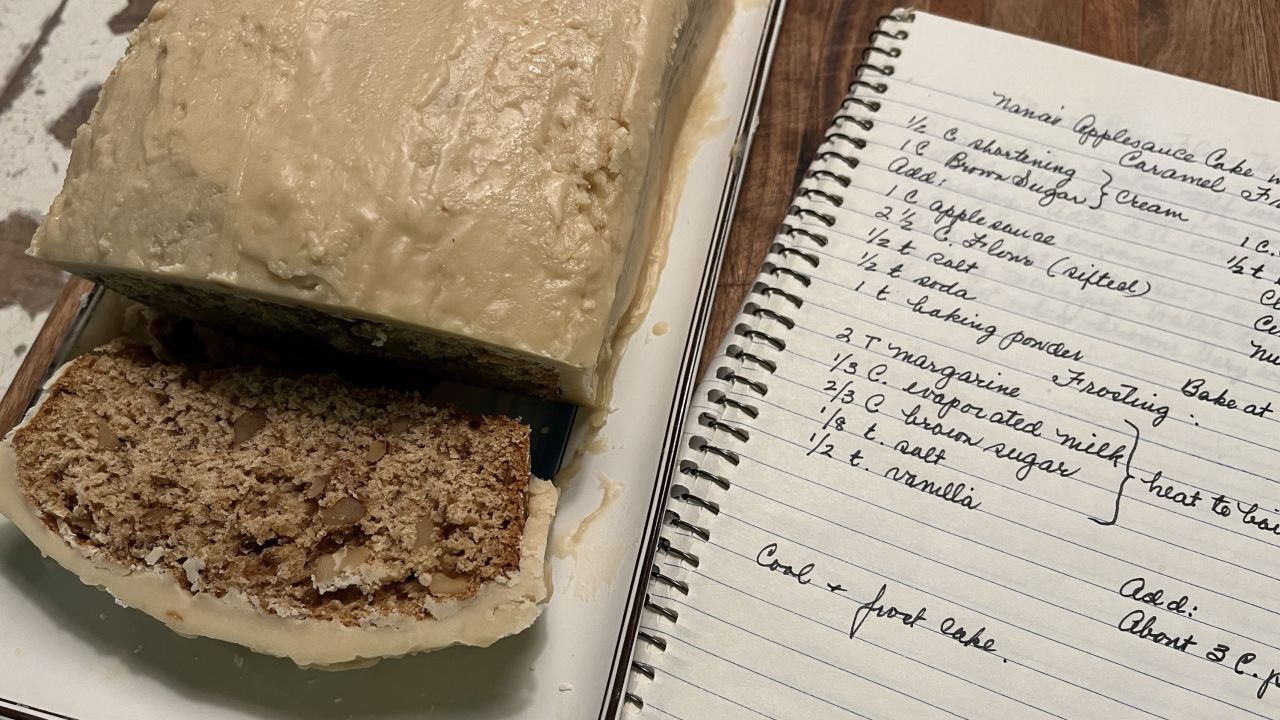 Nana's Applesauce Cake
Caramel
1/2 C shortening
1 C Brown Sugar } Cream
Add:
1 C applesauce
2 1/2 C. Flour (sifted)
1/2 t salt
1/2 t soda
1 t baking powder
1 C.
1/2 t
Bake at
Frosting:
2 T margarine
1/3 C. evaporated milk
2/3 C brown sugar
1/8 t. salt
1/2 t. vanilla
heat to
Add:
About 3 C.
Cool + frost cake.